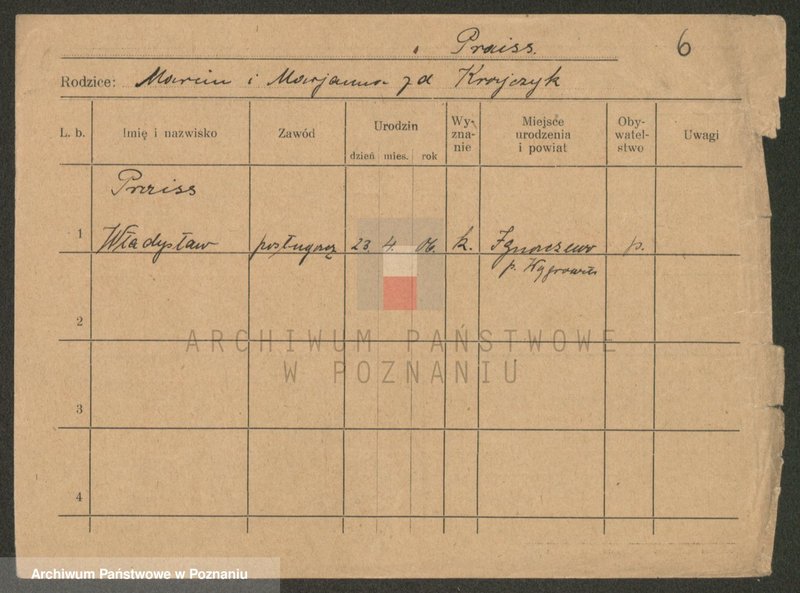 Praiss. 6
Rodzice: Marcin i Marjanna zd Krajczyk
L. b. Imię i nazwisko Zawód Urodzin dzień mies. rok Wyznanie Miejsce urodzenia i powiat Obywatelstwo Uwagi
Praiss
1 Władysław posługacz 23 4. 06. k. p.
p.
2
ARCHIWUM PAŃSTWOWE
W POZNANIU
3
4
Archiwum Państwowe w Poznaniu